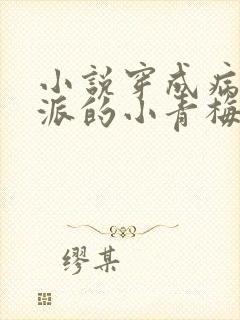 小說穿成病
派的小青梅
缪某